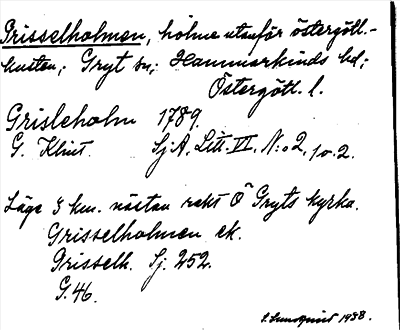 Grisselholmen, holme utanför östergötl.-
kusten; Gryt sn; Hammarkinds hd;
Östergötl. l.
Grisleholm 1789.
G. Klint. Sj.A, Litt. VI, N:o 2, 
Läge 3 km. nästan rakt Ö Gryts kyrka.
Grisselholmen ek.
Grisselh. Sj. 252.
G. 46.
1938.